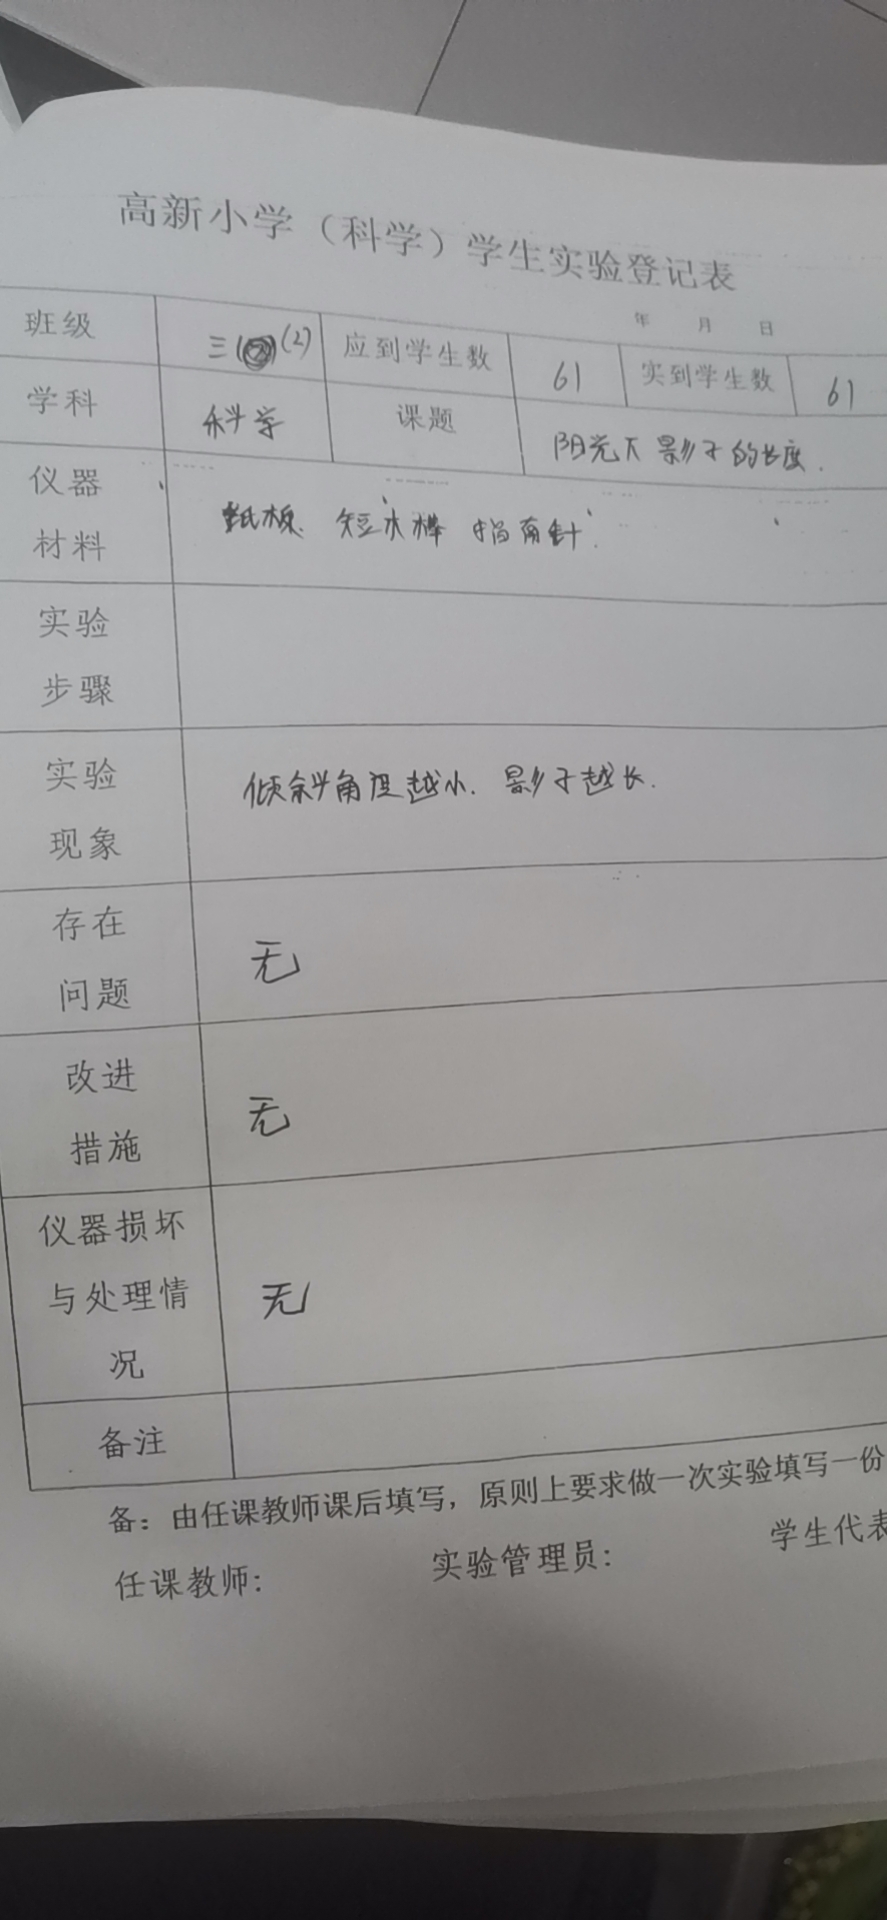 高新小学（科学）学生实验登记表
年 月 日
班级 三(2) 应到学生数 61 实到学生数 61
学科 科学 课题 阳光下影子的长度.
仪器材料 纸板. 短木棒 指南针.
实验步骤
实验现象 倾斜角度越小. 影子越长.
存在问题 无
改进措施 无
仪器损坏与处理情况 无
备注
备：由任课教师课后填写，原则上要求做一次实验填写一份
任课教师： 实验管理员： 学生代表